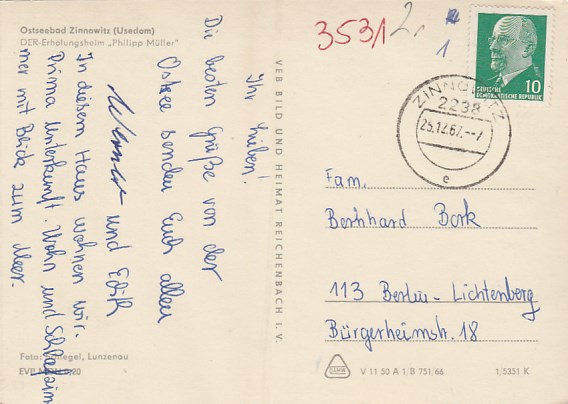 Ostseebad Zinnowitz (Usedom)
DER-Erholungsheim „Philipp Müller"
Ihr Lieben!
Die besten Grüße von der
Ostsee senden Euch allen
Werner und Edith
In diesem Haus wohnen wir.
Prima Unterkunft. Wohn und Schlafzim
mer mit Blick zum Meer.
Foto: Schlegel, Lunzenau
EVP MDN 0,20
VEB BILD UND HEIMAT REICHENBACH I. V.
3531
2.
1
DEUTSCHE
DEMOKRATISCHE REPUBLIK
10
ZINNOWITZ
2238
25.12.67.--7
e
Fam.
Bernhard Bork
113 Berlin-Lichtenberg
Bürgerheimstr. 18
V 11 50 A 1/B 751/66
1/5351 K